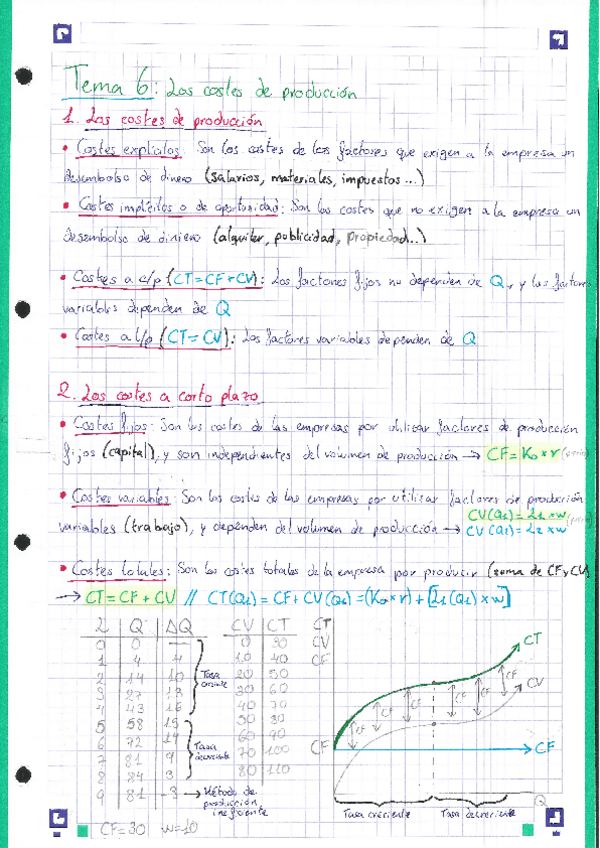 Tema 6: Los costes de producción
1. Los costes de producción
• Costes explícitos: Son los costes de los factores que exigen a la empresa un
desembolso de dinero (salarios, materiales, impuestos...)
• Costes implícitos o de oportunidad: Son los costes que no exigen a la empresa un
desembolso de dinero (alquiler, publicidad, propiedad...)
• Costes a c/p (CT=CF+CV): Los factores fijos no dependen de Q, y los factores
variables dependen de Q
• Costes a l/p (CT=CV): Los factores variables dependen de Q
2. Los costes a corto plazo
• Costes fijos: Son los costes de las empresas por utilizar factores de producción
fijos (capital), y son independientes del volumen de producción → CF=K₀×r
• Costes variables: Son los costes de las empresas por utilizar factores de producción
CV(Q₁)=L₁×w
variables (trabajo), y dependen del volumen de producción → CV(Q₂)=L₂×w
• Costes totales: Son los costes totales de la empresa por producir (suma de CF y CV)
→ CT=CF+CV // CT(Q₁)=CF+CV(Q₁)=(K₀×r)+[L₁(Q₁)×w]
L Q ΔQ CV CT CT
0 0 — 0 30 CV
1 4 4 10 40 CF
2 14 10 Tasa creciente 20 50
3 27 13 30 60
4 43 16 40 70
5 58 15
6 72 14 Tasa decreciente 60 90
7 81 9 70 100
8 84 3 80 110
9 81 -3 → Método de
producción
ineficiente
CF=30 w=10
CT
CV
CF CF CF CF CF CF
CF CF
Q
Tasa creciente Tasa decreciente